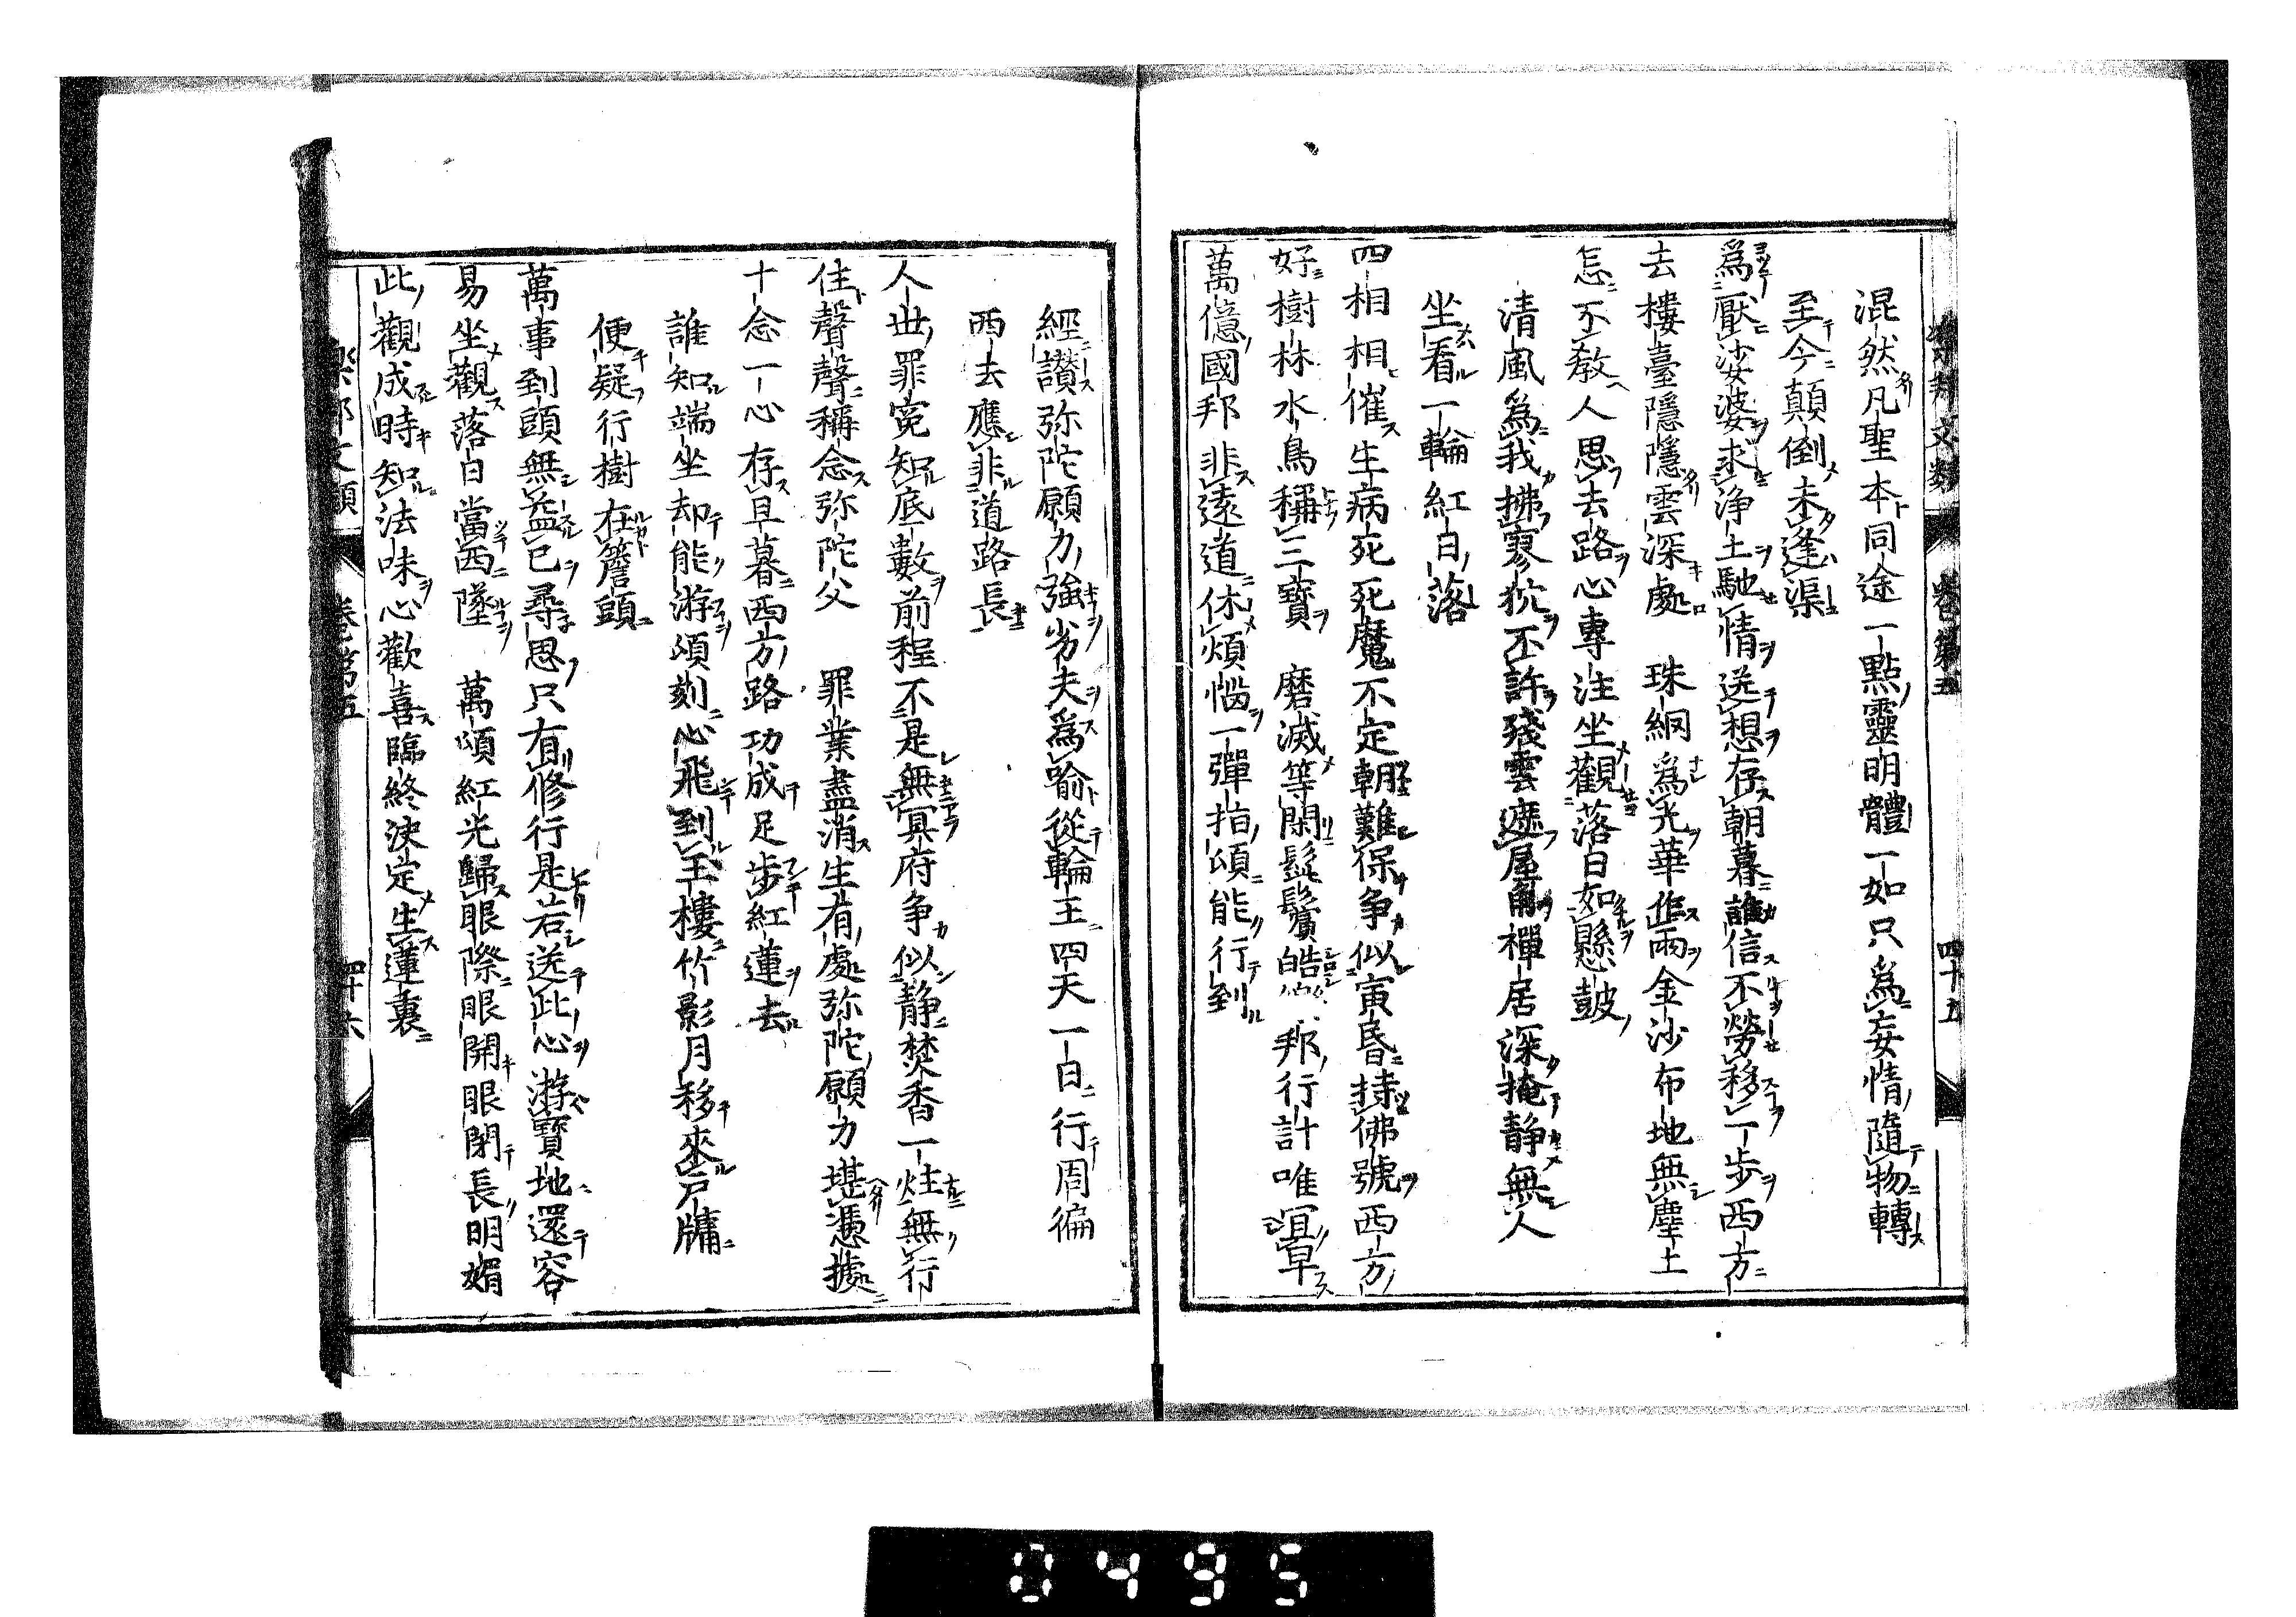 樂邦文類 卷第五 四十五
混然凡聖本同途一點靈明體一如只爲妄情隨物轉
至今顛倒未逢渠
爲厭娑婆求淨土馳情送想存朝暮誰信不勞移一步西方
去樓臺隱隱雲深處 珠網爲光華作雨金沙布地無塵土
怎不教人思去路心專注坐觀落日如懸鼓
清風爲我拂寥
不許殘雲遮屋角禪居深掩靜無人
坐看一輪紅日落
四相相催生病死死魔不定朝難保爭似寅昏持佛號西方
好樹林水鳥稱三寶 磨滅等閑髭鬢皓 邦行計唯宜早
萬億國邦非遠道休煩惱一彈指頃能行到
經讚弥陀願力強劣夫爲喻從輪王四天一日行周徧
西去應非道路長
人世罪寃知底數前程不是無冥府爭似靜焚香一炷無行
住聲聲稱念弥陀父 罪業盡消生有處弥陀願力堪憑據
十念一心存旦暮西方路功成足步紅蓮去
誰知端坐却能游頃刻心飛到玉樓竹影月移來戶牗
便疑行樹在簷頭
萬事到頭無益已尋思只有修行是若送此心游寶地還容
易坐觀落日當西墜 萬頃紅光歸眼際眼開眼閉長明媚
此觀成時知法味心歡喜臨終決定生蓮裏
樂邦文類 卷第五 四十六
0495